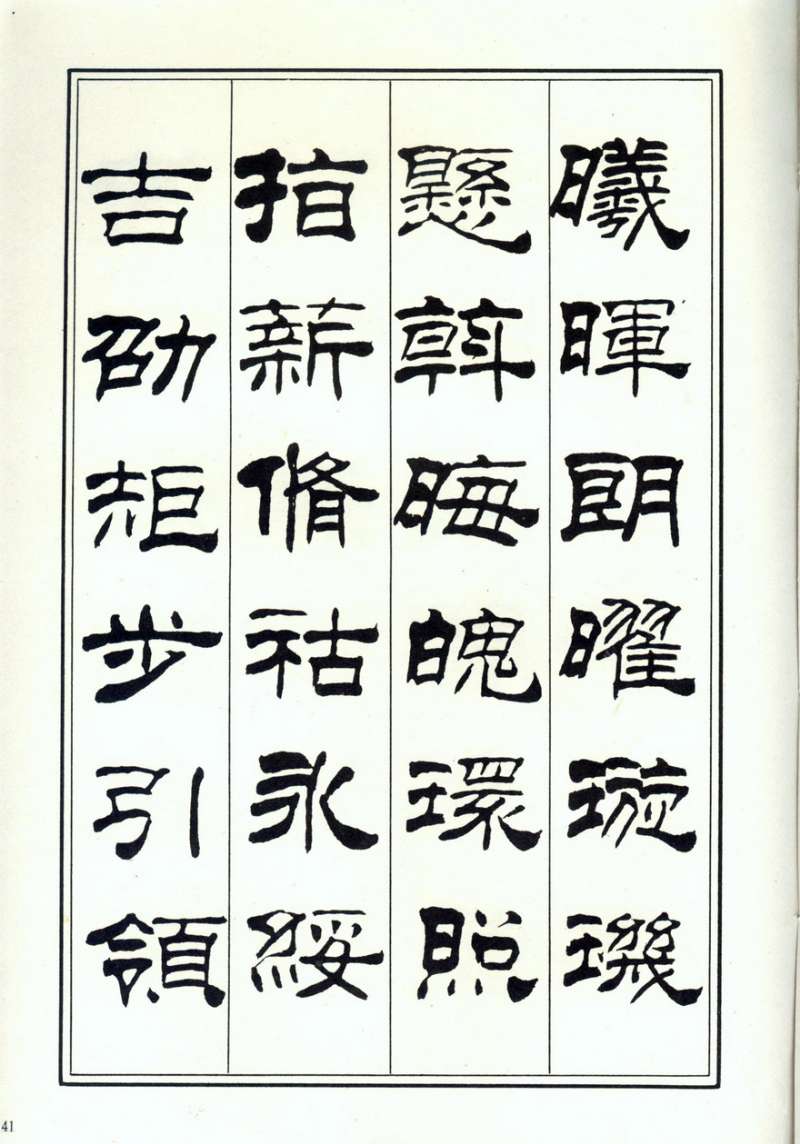 曦暉朗曜璇璣
懸斡晦魄環照
指薪脩祜永綏
吉劭矩步引領
41